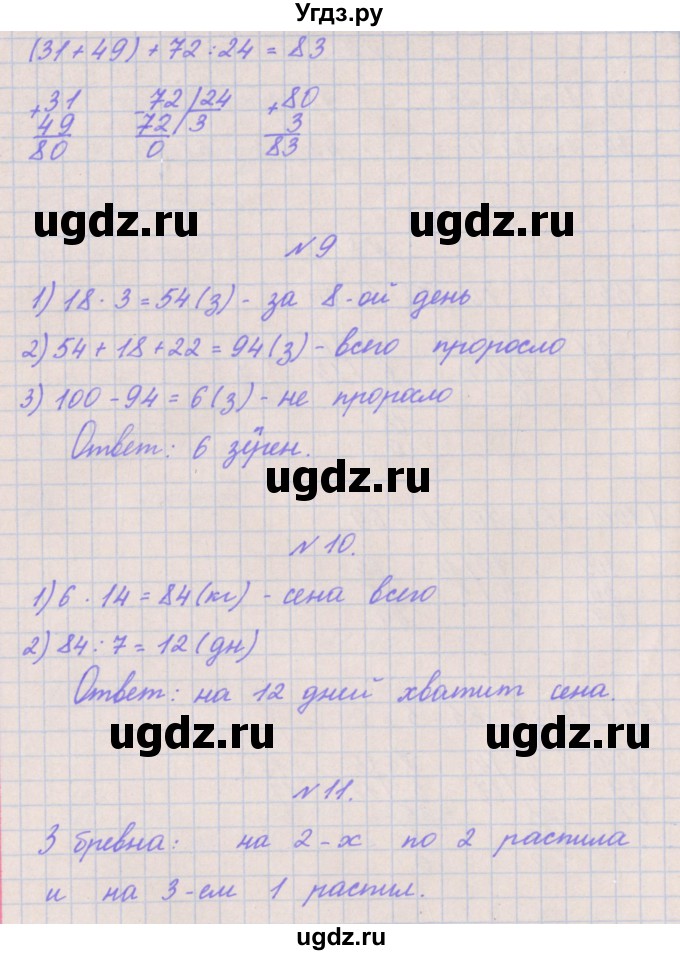 Угдз.ру
(31 + 49) + 72 : 24 = 83
+31 -72 | 24 +80
49 72 | 3 3
80 0 83
ugdz.ru ugdz.ru
№ 9
1) 18 · 3 = 54 (з) - за 8-ой день
2) 54 + 18 + 22 = 94 (з) - всего проросло
3) 100 - 94 = 6 (з) - не проросло
Ответ: 6 зёрен.
ugdz.ru
№ 10.
1) 6 · 14 = 84 (кг) - сена всего
2) 84 : 7 = 12 (дн)
Ответ: на 12 дней хватит сена.
ugdz.ru ugdz.ru
№ 11.
3 бревна: на 2-х по 2 распила
и на 3-ем 1 распил.
ugdz.ru